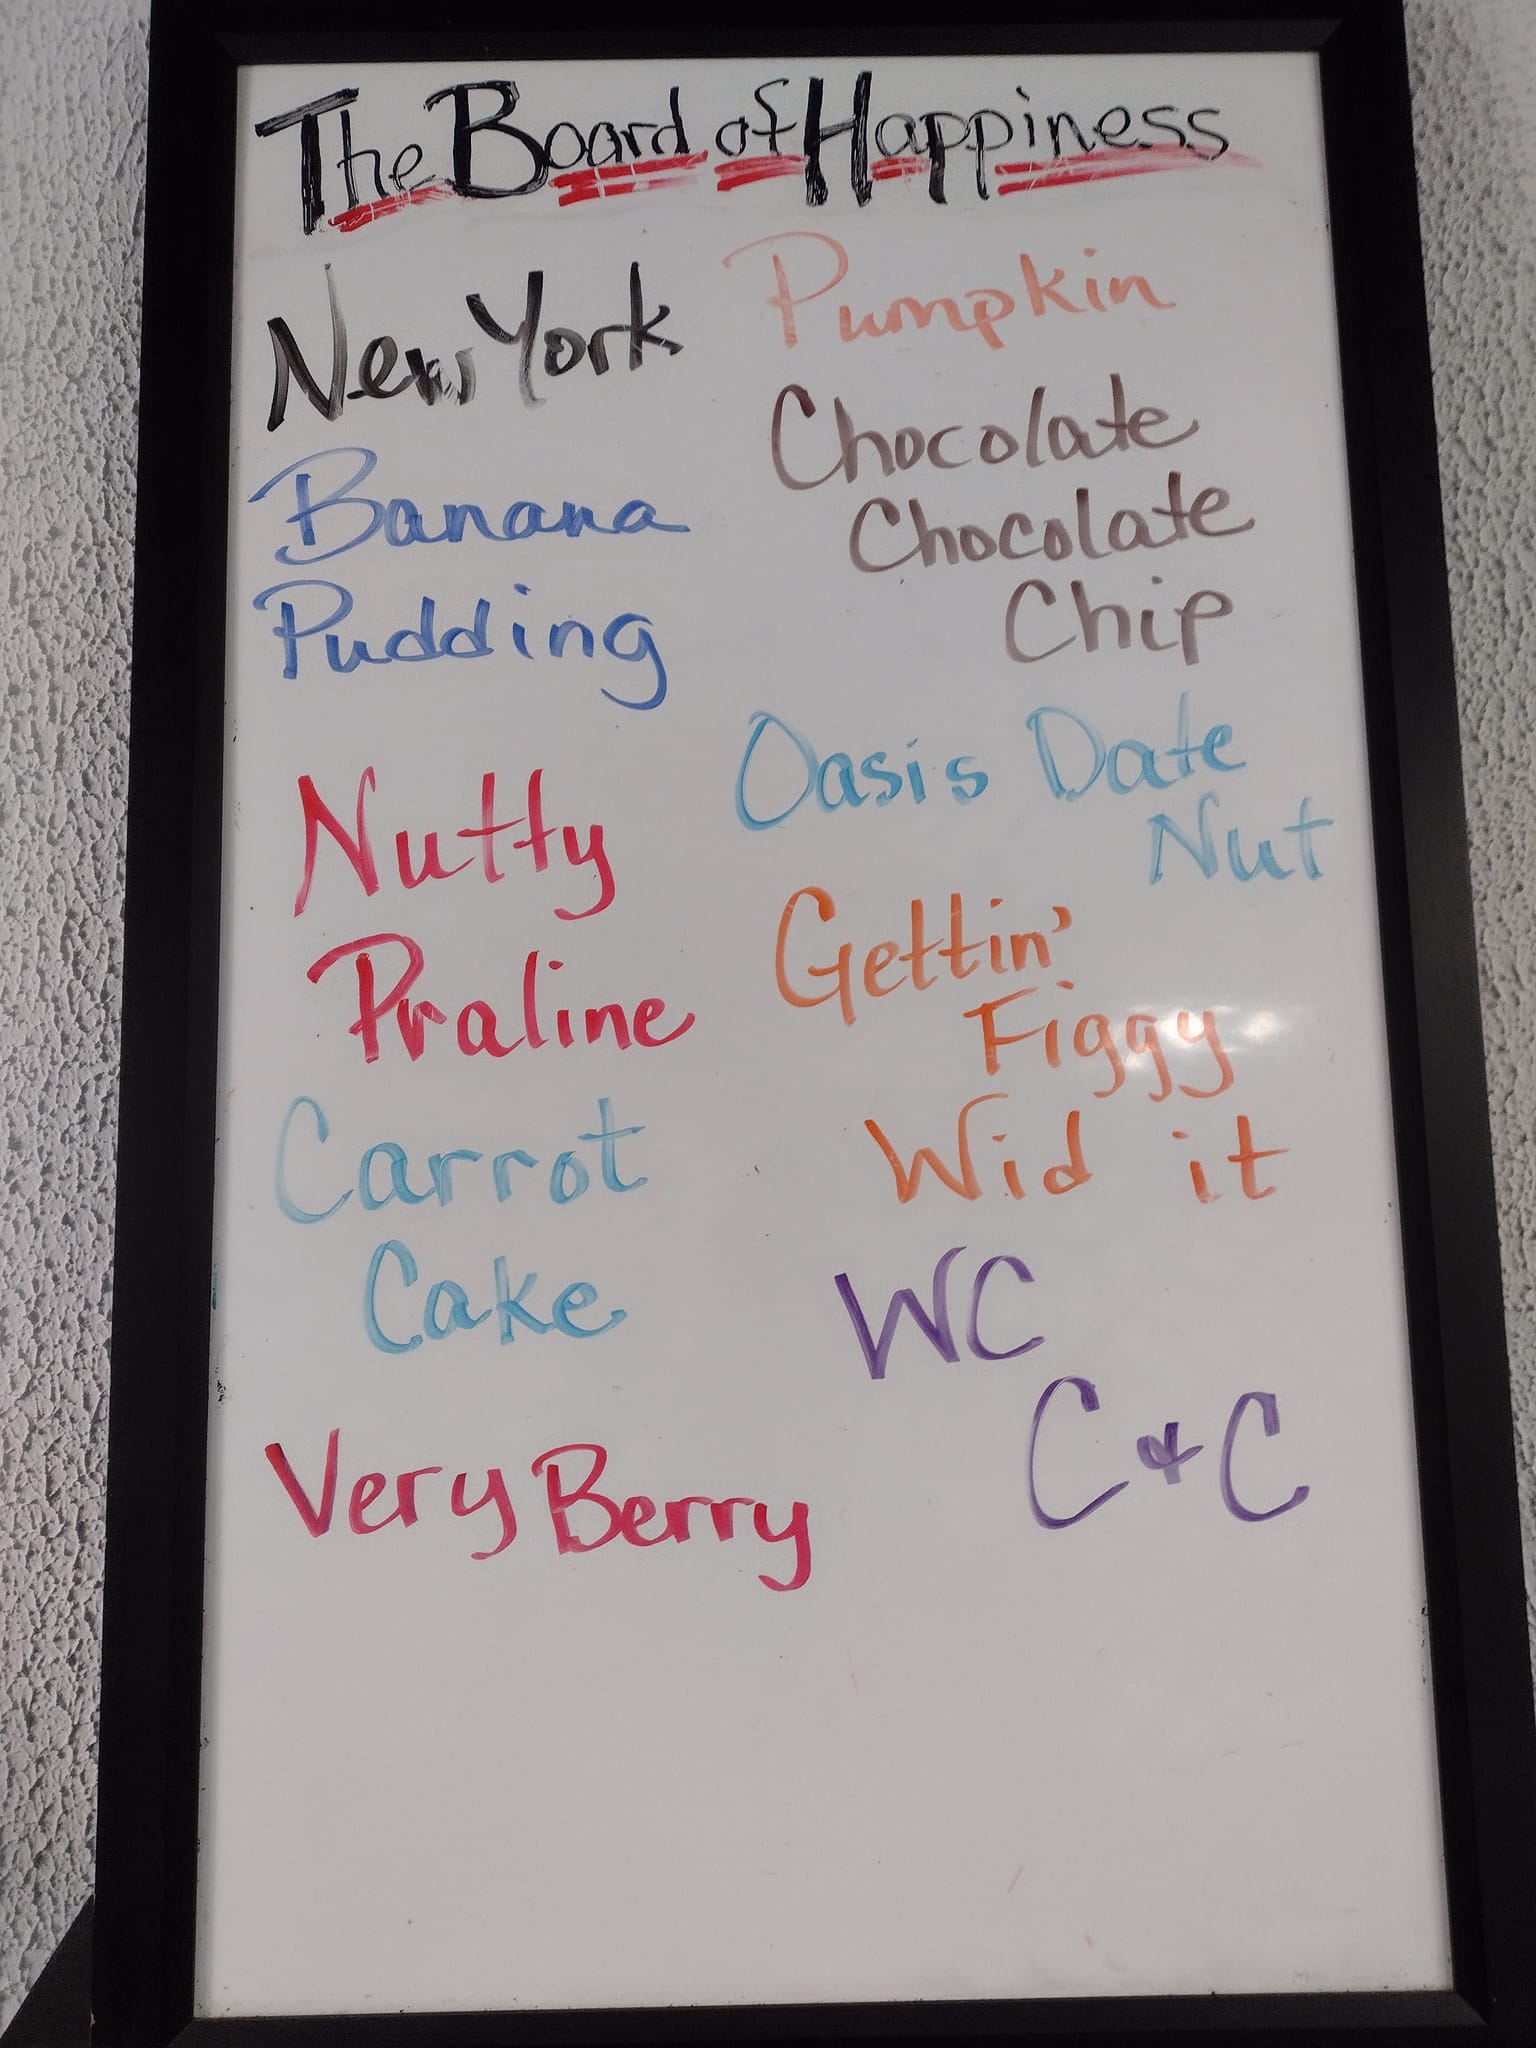 The Board of Happiness
New York
Banana
Pudding
Nutty
Praline
Carrot
Cake
Very Berry
Pumpkin
Chocolate
Chocolate
Chip
Oasis Date
Nut
Gettin'
Figgy
Wid it
WC
C & C